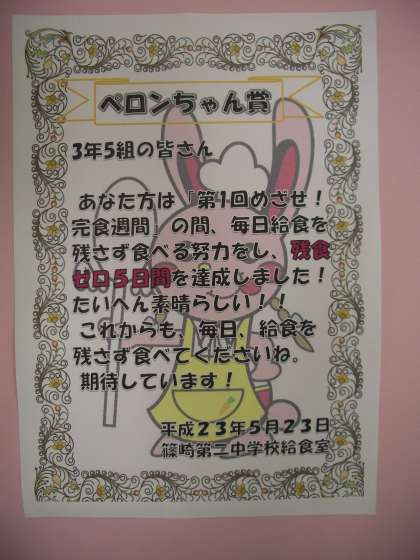 ペロンちゃん賞
3年5組の皆さん
あなた方は「第1回めざせ！
完食週間」の間、毎日給食を
残さず食べる努力をし、残食
ゼロ5日間を達成しました！
たいへん素晴らしい！！
これからも、毎日、給食を
残さず食べてくださいね。
期待しています！
平成23年5月23日
篠崎第二中学校給食室